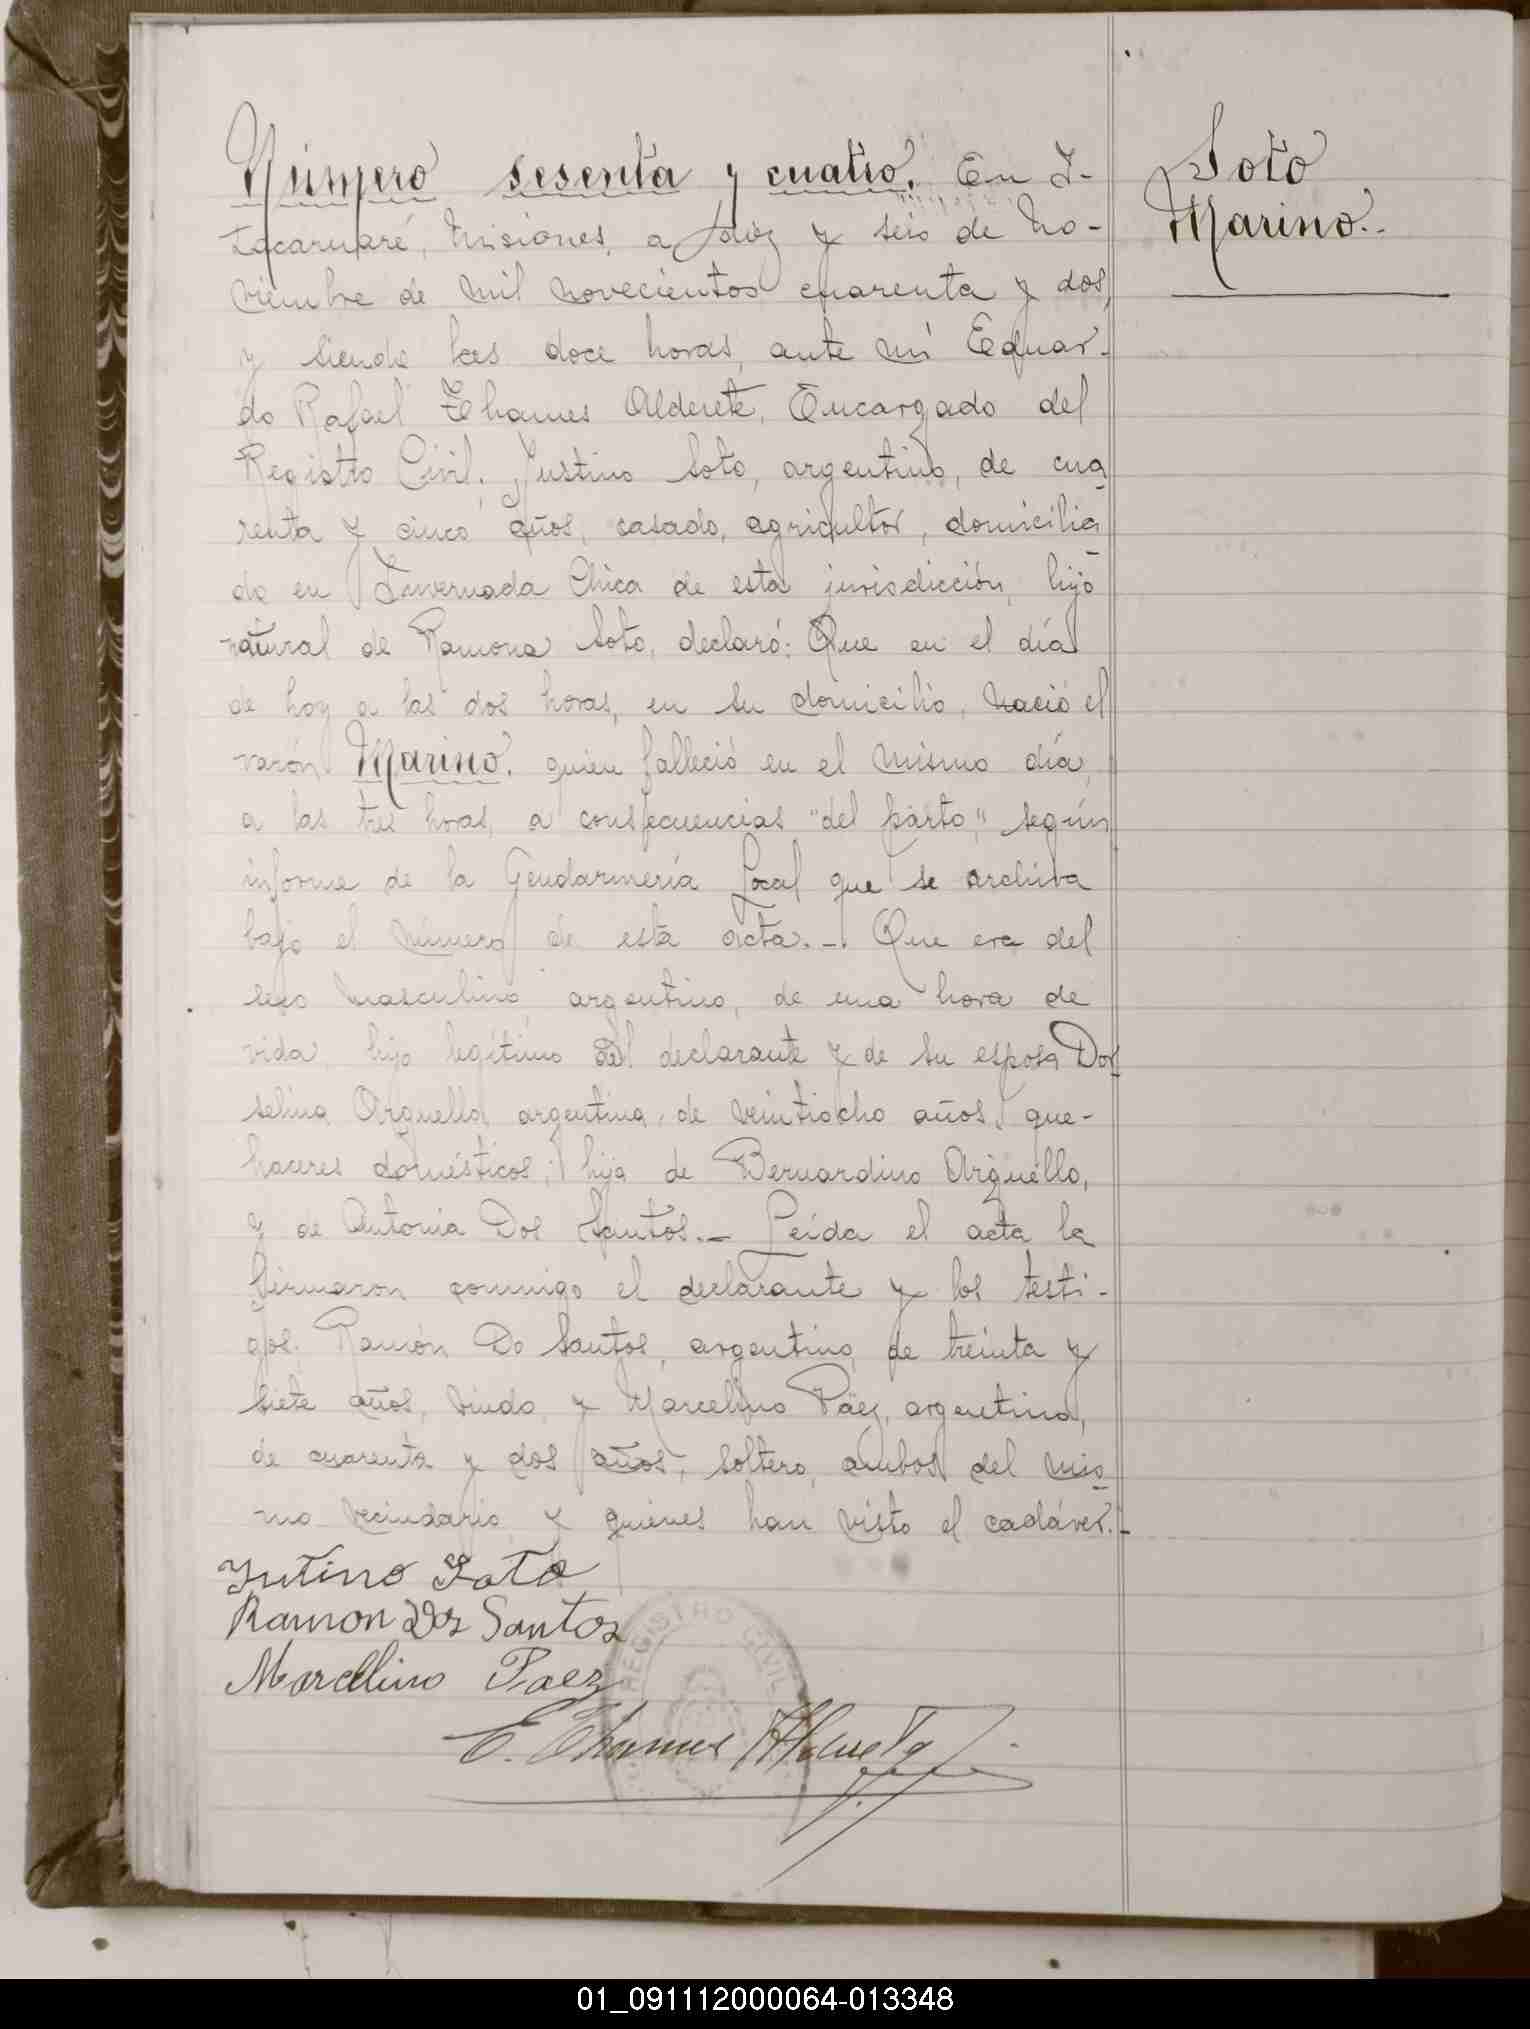 Número sesenta y cuatro. En I-
tacaruaré, Misiones, a diez y seis de No-
viembre de mil novecientos cuarenta y dos,
y siendo las doce horas, ante mí Eduar-
do Rafael Thames Alderete, Encargado del
Registro Civil, Justino Soto, argentino, de cua
renta y cinco años, casado, agricultor, domicilia
do en Invernada Chica de esta jurisdicción, hijo
natural de Ramona Soto, declaró: Que en el día
de hoy a las dos horas, en su domicilio, nació el
varón Marino, quien falleció en el mismo día,
a las tres horas, a consecuencias "del parto," según
informe de la Gendarmería Local que se archiva
bajo el número de esta acta.- Que era del
sexo masculino, argentino, de una hora de
vida, hijo legítimo del declarante y de su esposa Dor
selina Arguello, argentina, de veintiocho años, que-
haceres domésticos; hija de Bernardino Arguello,
y de Antonia Dos Santos.- Leída el acta la
firmaron conmigo el declarante y los testi-
gos: Ramón Do Santos, argentino, de treinta y
siete años, viudo, y Marcelino Páez, argentino,
de cuarenta y dos años, soltero, ambos del mis
mo vecindario y quienes han visto el cadáver.-
Jutino Soto
Ramon Dos Santos
Marcelino Paez
E. Thames Alderete
REGISTRO CIVIL
Soto
Marino.-
01_091112000064-013348